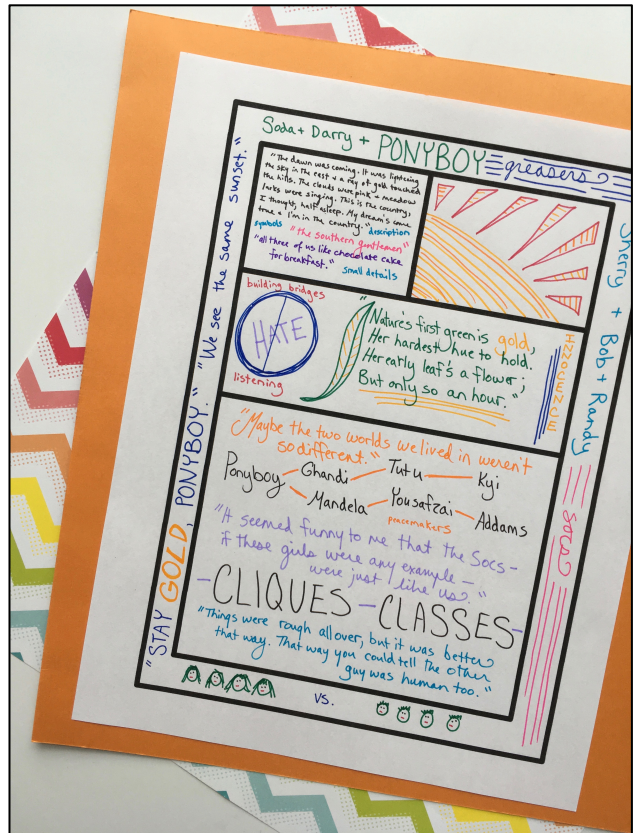 Soda + Darry + PONYBOY greasers
Sherry + Bob + Randy
socs
"STAY GOLD, PONYBOY." "We see the same sunset."
"The dawn was coming. It was lightening
the sky in the east & a ray of gold touched
the hills. The clouds were pink & meadow
larks were singing. This is the country,
I thought, half asleep. My dream's come
true & I'm in the country."
description
symbols
"the southern gentlemen"
"all three of us like chocolate cake
for breakfast."
small details
building bridges
HATE
listening
"Nature's first green is gold,
Her hardest hue to hold.
Her early leaf's a flower;
But only so an hour."
INNOCENCE
"Maybe the two worlds we lived in weren't
so different."
Ponyboy Ghandi Tutu Kyi
Mandela Yousafzai Addams
peacemakers
"It seemed funny to me that the Socs -
if these girls were any example -
were just like us."
- CLIQUES - CLASSES -
"Things were rough all over, but it was better
that way. That way you could tell the other
guy was human too."
vs.